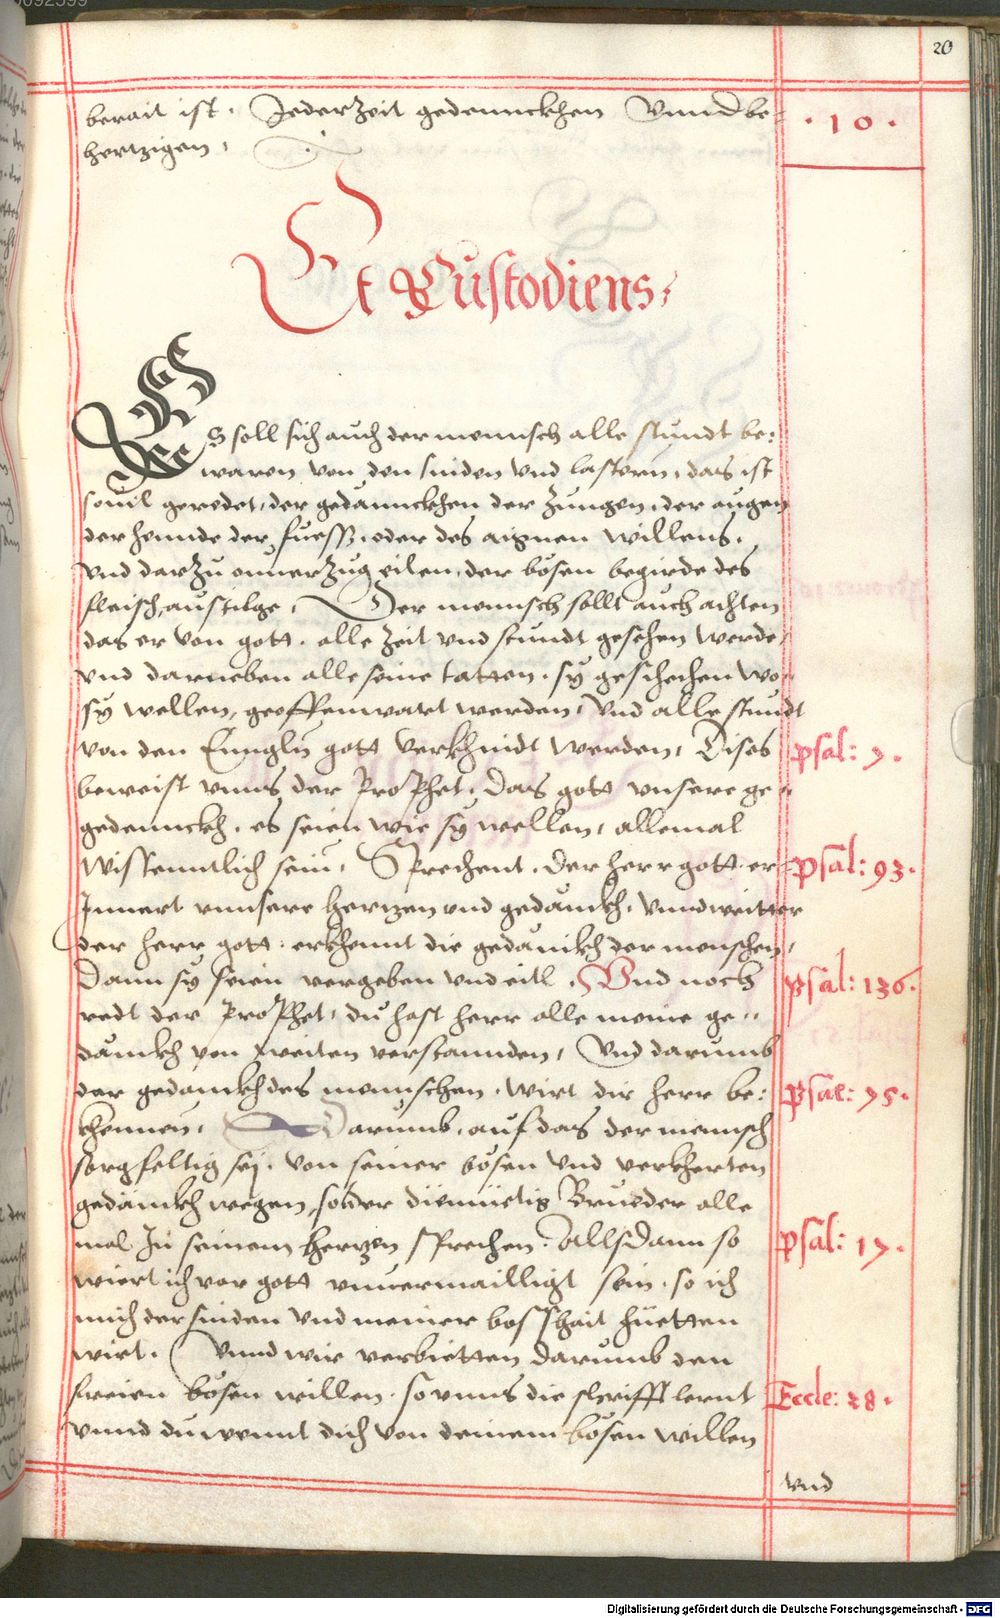 20
berait ist. Jeder Zeit gedennckhen Vnnd be-
. 10 .
hertzigen,
Et Custodiens,
Es soll sich auch der mennsch alle stundt be:
waren von den sinden vnd lastern, das ist
souil geredet, der gedannckhen der Zungen, der augen
der hennde der fuess, oder des aignen willens.
Vnd darzu ennerzug eilen, der bösen begirde des
fleisch, austilge, Der mennsch sollt auch achten
das er von gott. alle Zeit vnd stundt gesehen werde,
vnd darneben alle seine tatten. sÿ geschechen wo
sÿ wellen, geoffenwart werden, Vnd alle stundt
von den Enngln gott verkhindt werden, Dises
Psal: 7.
beweist vnns der Prophet, Das gott vnsere ge-
gedennckh, es seien wie sÿ wellen, allemal
wissenntlich sein, Sprechent. Der herr gott. er-
Psal: 93.
Innert vnnsere hertzen vnd gedännkh, Vnnd weitter
der herr gott: erkhennt die gedänckh der menschen,
Dann sÿ seien vergeben vnd eitl, Vnd noch
Psal: 136.
redt der Prophet, du hast herr alle meine ge-
dännkh von weiten verstannden, Vnd darumb
der gedannkh des mennschen. wirt dir herr be:
Psal: 75.
khennen, Darumb, auf das der mennsch
sorgfeltig sej. von seiner bösen vnd verkherten
gedännkh wegen, sol der diemüetig Brueder alle
mal In seinem hertzen sprechen. Allsdann so
Psal: 17.
wiert ich vor gott vnuermailligt sein. so ich
mich der sinden vnd meiner bosshait hüetten
wirt. Vnnd wir verbietten darumb den
freien bösen willen. so vnns die schrifft lernt
Eccle: 28.
vnnd du wennt dich von deinem bösen willen
vnd
Digitalisierung gefördert durch die Deutsche Forschungsgemeinschaft - DFG